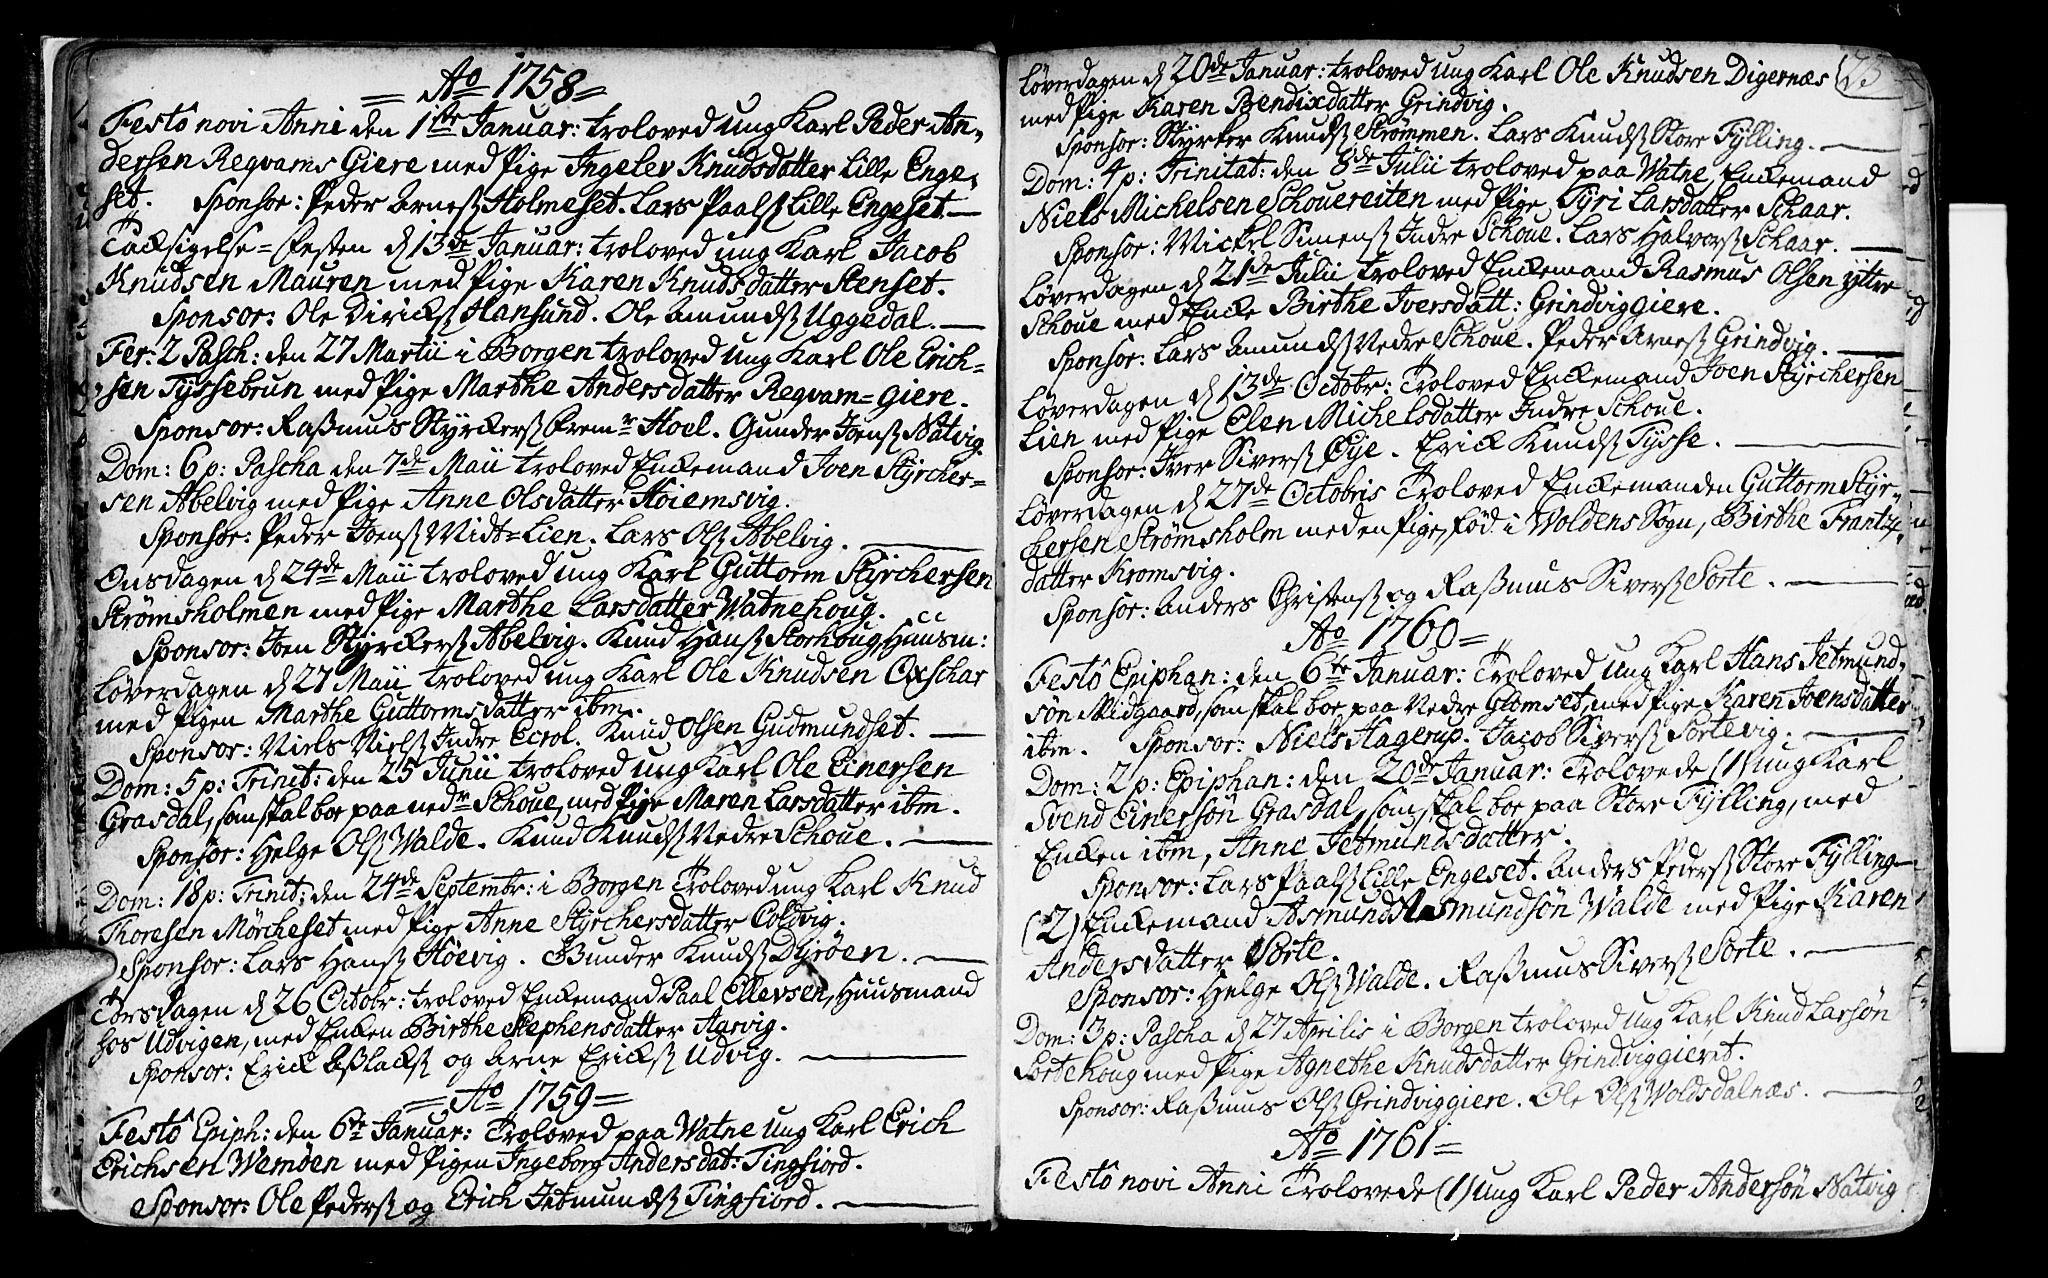 = Ao 1758 =
Festô novi Anni den 1ste Januar: troloved ung Karl Peder An-
dersen Reqvams Giere med Pige Ingelev Knudsdatter Lille Enge-
set. Sponsor: Peder Arneß Holmeset. Lars Paalß Lille Engeset. —
Tacksigelse-Festen d 13de Januar: troloved ung Karl Jacob
Knudsen Mauren med Pige Karen Knudsdatter Stenset.
Sponsor: Ole Dirickß Hansund. Ole Amundß Uggedal. —
Fer: 2 Pasch: den 27 Martii i Borgen troloved ung Karl Ole Erich-
sen Tyssebrun med Pige Marthe Andersdatter Reqvam=Giere.
Sponsor: Raßmus Styrckerß Fremr Hoel. Gunder Joenß Natvig
Dom: 6 p: Pascha den 7de Maii troloved Enckemand Joen Styrcher-
sen Abelvig med Pige Anne Olsdatter Høiemsvig.
Sponsor: Peder Joenß Midt=Lien. Lars Olß Abelvig. —
Onsdagen d 24de Maii troloved ung Karl Guttorm Styrchersen
Strømsholmen med Pige Marthe Larsdatter Watnehoug.
Sponsor: Joen Styrckerß Abelvig. Knud Hanß Storhoug, Huusm:
Løverdagen d 27 Maii troloved ung Karl Ole Knudsen Oxschar
med Pigen Marthe Guttormsdatter ibm.
Sponsor: Niels Nielß Indre Ecrol. Knud Olsen Gudmundset. —
Dom: 5 p: Trinit: den 25 Junii troloved ung Karl Ole Einersen
Grasdal, som skal boe paa nedr Schoue, med Pige Maren Larsdatter ibm.
Sponsor: Helge Olß Walde. Knud Knudß Nedre Schoue. —
Dom: 18 p: Trinit: den 24de Septembr: i Borgen Troloved ung Karl Knud
Thoresen Mörcheset med Pige Anne Styrchersdatter Coldvig.
Sponsor: Lars Hanß Höevig. Gunder Knudß Dyröen. —
Torsdagen d 26 Octobr: troloved Enckemand Paal Ellevsen, Huusmand
hos Udvigen, med Encken Birthe Stephensdatter Aarvig.
Sponsor: Erick Aßlackß og Arne Erickß Udvig. —
= Ao 1759 =
Festô Epiph: den 6te Januar: Troloved paa Watne ung Karl Erich
Erichsen Wemöen med Pigen Ingeborg Andersdat: Tingfiord.
Sponsor: Ole Pederß og Erich Jetmundß Tingfiord. —
23
Løverdagen d 20de Januar: troloved ung Karl Ole Knudsen Digernæs
med Pige Karen Bendixdatter Grindvig.
Sponsor: Styrker Knudß Strømmen. Lars Knudß Store Fylling. —
Dom: 4 p: Trinitat: den 8de Julii troloved paa Watne Enckemand
Niels Michelsen Schouereiten med Pige Tyri Larsdatter Schaar.
Sponsor: Mickel Simenß Indre Schoue. Lars Halvorß Schaar. —
Løverdagen d 21de Julii troloved Enckemand Rasmus Olsen yttre
Schoue med Encke Birthe Iversdatt: Grindviggiere.
Sponsor: Lars Amundß Nedre Schoue. Peder Arneß Grindvig. —
Løverdagen d 13de Octobr: Troloved Enckemand Joen Styrchersen
Lien med Pige Elen Michelsdatter Indre Schoue.
Sponsor: Iver Siverß Øye. Erick Knudß Tysse. —
Løverdagen d 27de Octobris Troloved Enckemanden Guttorm Styr-
chersen Strømsholm med en Pige, föd i Woldens Sogn, Birthe Frantz-
datter Kromsvig.
Sponsor: Anders Christenß og Raßmus Siverß Sorte. —
Ao 1760 =
Festô Epiphan: den 6te Januar: Troloved ung Karl Hans Jetmund-
sön Midtgaard, som skal boe paa Nedre Glomset, med Pige Karen Joensdatter
ibm. Sponsor: Niels Hagerup. Jacob Siverß Sortevig. —
Dom: 2 p: Epiphan: den 20de Januar: Trolovede (1) ung Karl
Svend Einersön Grasdal, som skal boe paa Store Fylling, med
Encken ibm, Anne Jetmundsdatter.
Sponsor: Lars Paalß Lille Engeset. Anders Pederß Store Fylling —
(2) Enckemand Asmund Asmundsön Walde med Pige Karen
Andersdatter Sorte.
Sponsor: Helge Olß Walde. Raßmus Siverß Sorte. —
Dom: 3 p: Pascha d 27 Aprilis i Borgen troloved ung Karl Knud Larsön
Sortehoug med Pige Agnethe Knudsdatter Grindviggieret.
Sponsor: Raßmus Olß Grindviggiere. Ole Olß Woldsdalnæs. —
Ao 1761 =
Festô novi Anni Trolovede (1) ung Karl Peder Andersön Natvig